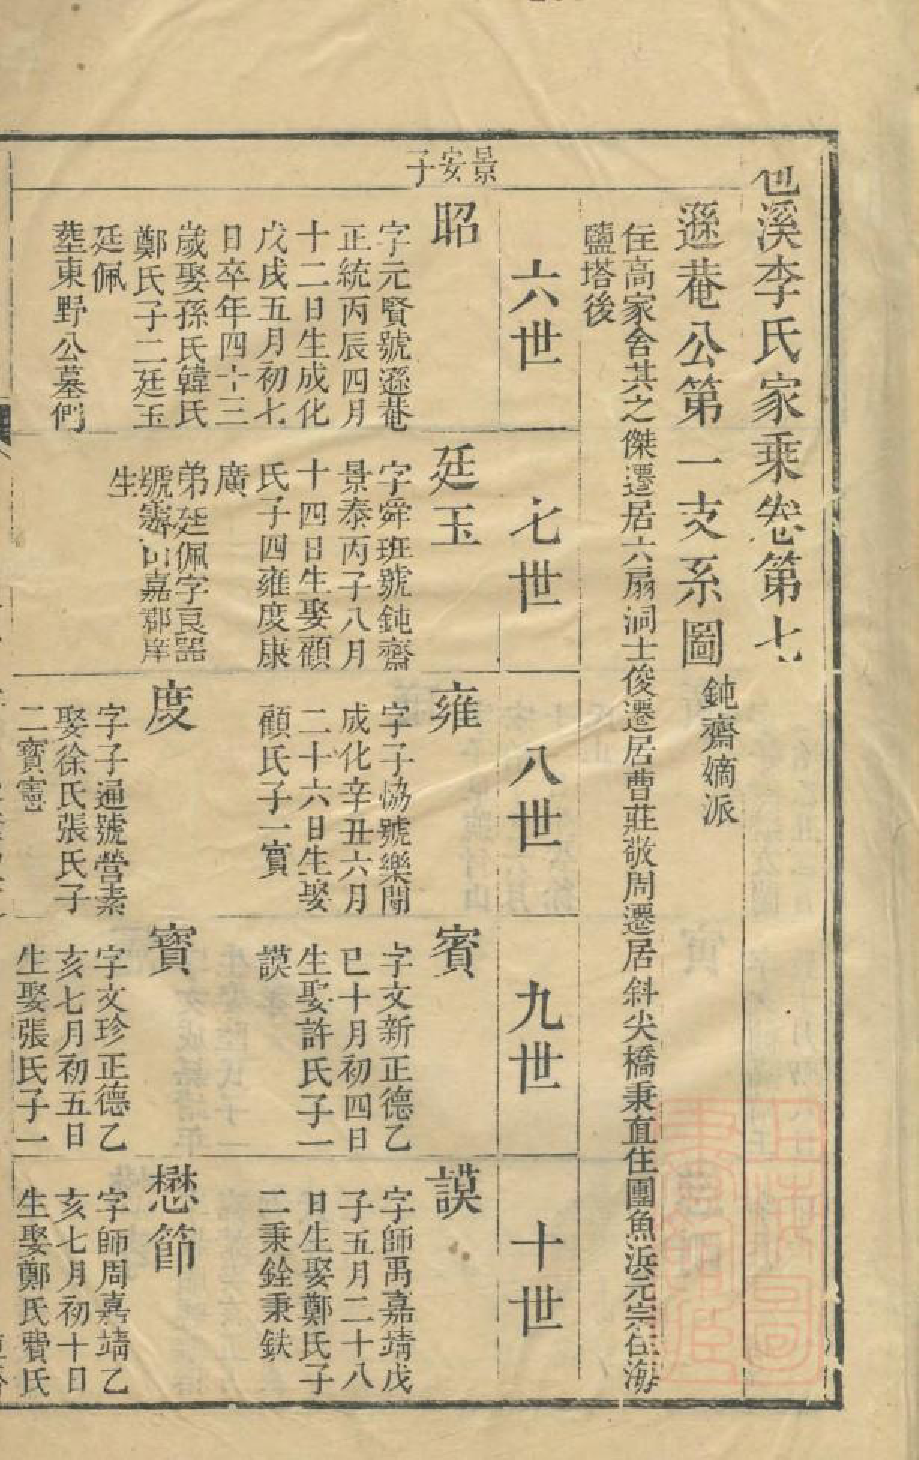 包溪李氏家乘卷第七
遜菴公第一支系圖
鈍齋嫡派
住高家舍其之傑遷居六扇洞士俊遷居曹莊敬周遷居斜尖橋秉直住團魚浜元宗住海
鹽塔後
景安子
六世
昭
字元賢號遜菴
正統丙辰四月
十二日生成化
戊戌五月初七
日卒年四十三
歲娶孫氏韓氏
鄭氏子二廷玉
廷佩
塟東野公墓側
七世
廷玉
字舜班號鈍齋
景泰丙子八月
十四日生娶顧
氏子四雍度康
廣
弟廷佩字良器
號 山嘉郡庠
生
八世
雍
字子恊號樂閒
成化辛丑六月
二十六日生娶
顧氏子一賓
度
字子通號營素
娶徐氏張氏子
二寶憲
九世
賓
字文新正德乙
巳十月初四日
生娶許氏子一
謨
寶
字文珍正德乙
亥七月初五日
生娶張氏子一
十世
謨
字師禹嘉靖戊
子五月二十八
日生娶鄭氏子
二秉銓秉鈇
懋節
字師周嘉靖乙
亥七月初十日
生娶鄭氏費氏